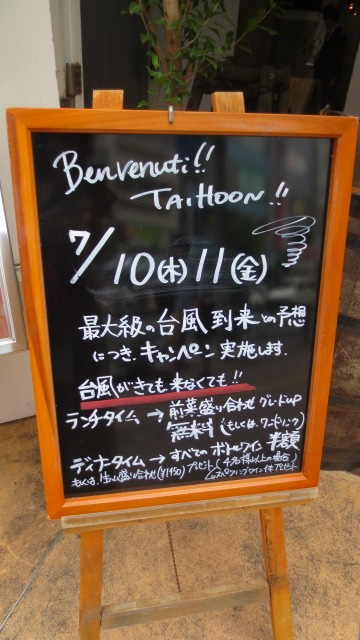 Benvenuti!!
TAIHOON!!
7/10(木)11(金)
最大級の台風到来との予想
につき、キャンペーン実施します。
台風がきても、来なくても!!
ランチタイム → 前菜盛り合わせ グレードup
無料(もしくは、ワンドリンク)
ディナータイム → すべてのボトルワイン 半額
もしくは、生ハム盛り合わせ(¥1450)プレゼント(4名様以上の場合)
スパークリングワイン1本プレゼント